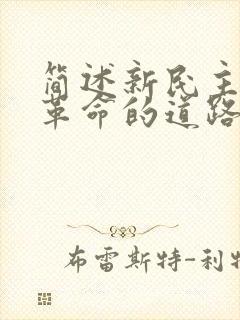 简述新民主
革命的道路
布雷斯特-利特